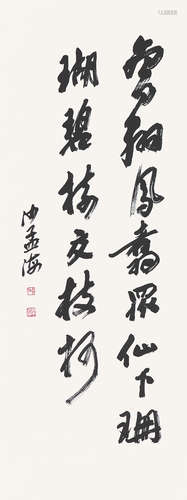 鸾翔凤翥众仙下珊
瑚碧树交枝柯
沙孟海